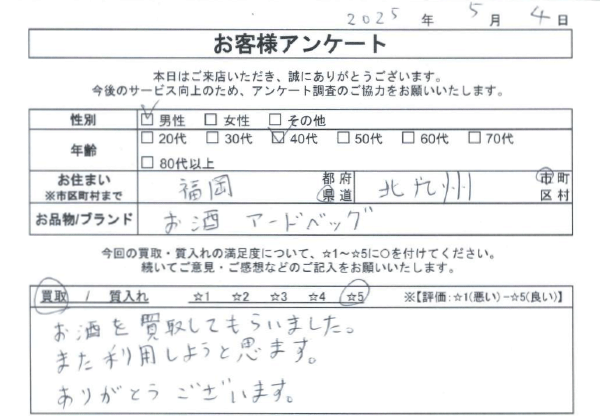 2025 年 5 月 4 日
お客様アンケート
本日はご来店いただき、誠にありがとうございます。
今後のサービス向上のため、アンケート調査のご協力をお願いいたします。
性別 ☑ 男性 □ 女性 □ その他
年齢 □ 20代 □ 30代 ☑ 40代 □ 50代 □ 60代 □ 70代
□ 80代以上
お住まい ※市区町村まで 福岡 都 府 県 道 北九州 市 町 区 村
お品物/ブランド お酒 アードベッグ
今回の買取・質入れの満足度について、☆1～☆5に○を付けてください。
続いてご意見・ご感想などのご記入をお願いいたします。
買取 / 質入れ ☆1 ☆2 ☆3 ☆4 ☆5 ※【評価:☆1(悪い)-☆5(良い)】
お酒を買取してもらいました。
また利用しようと思ます。
ありがとうございます。